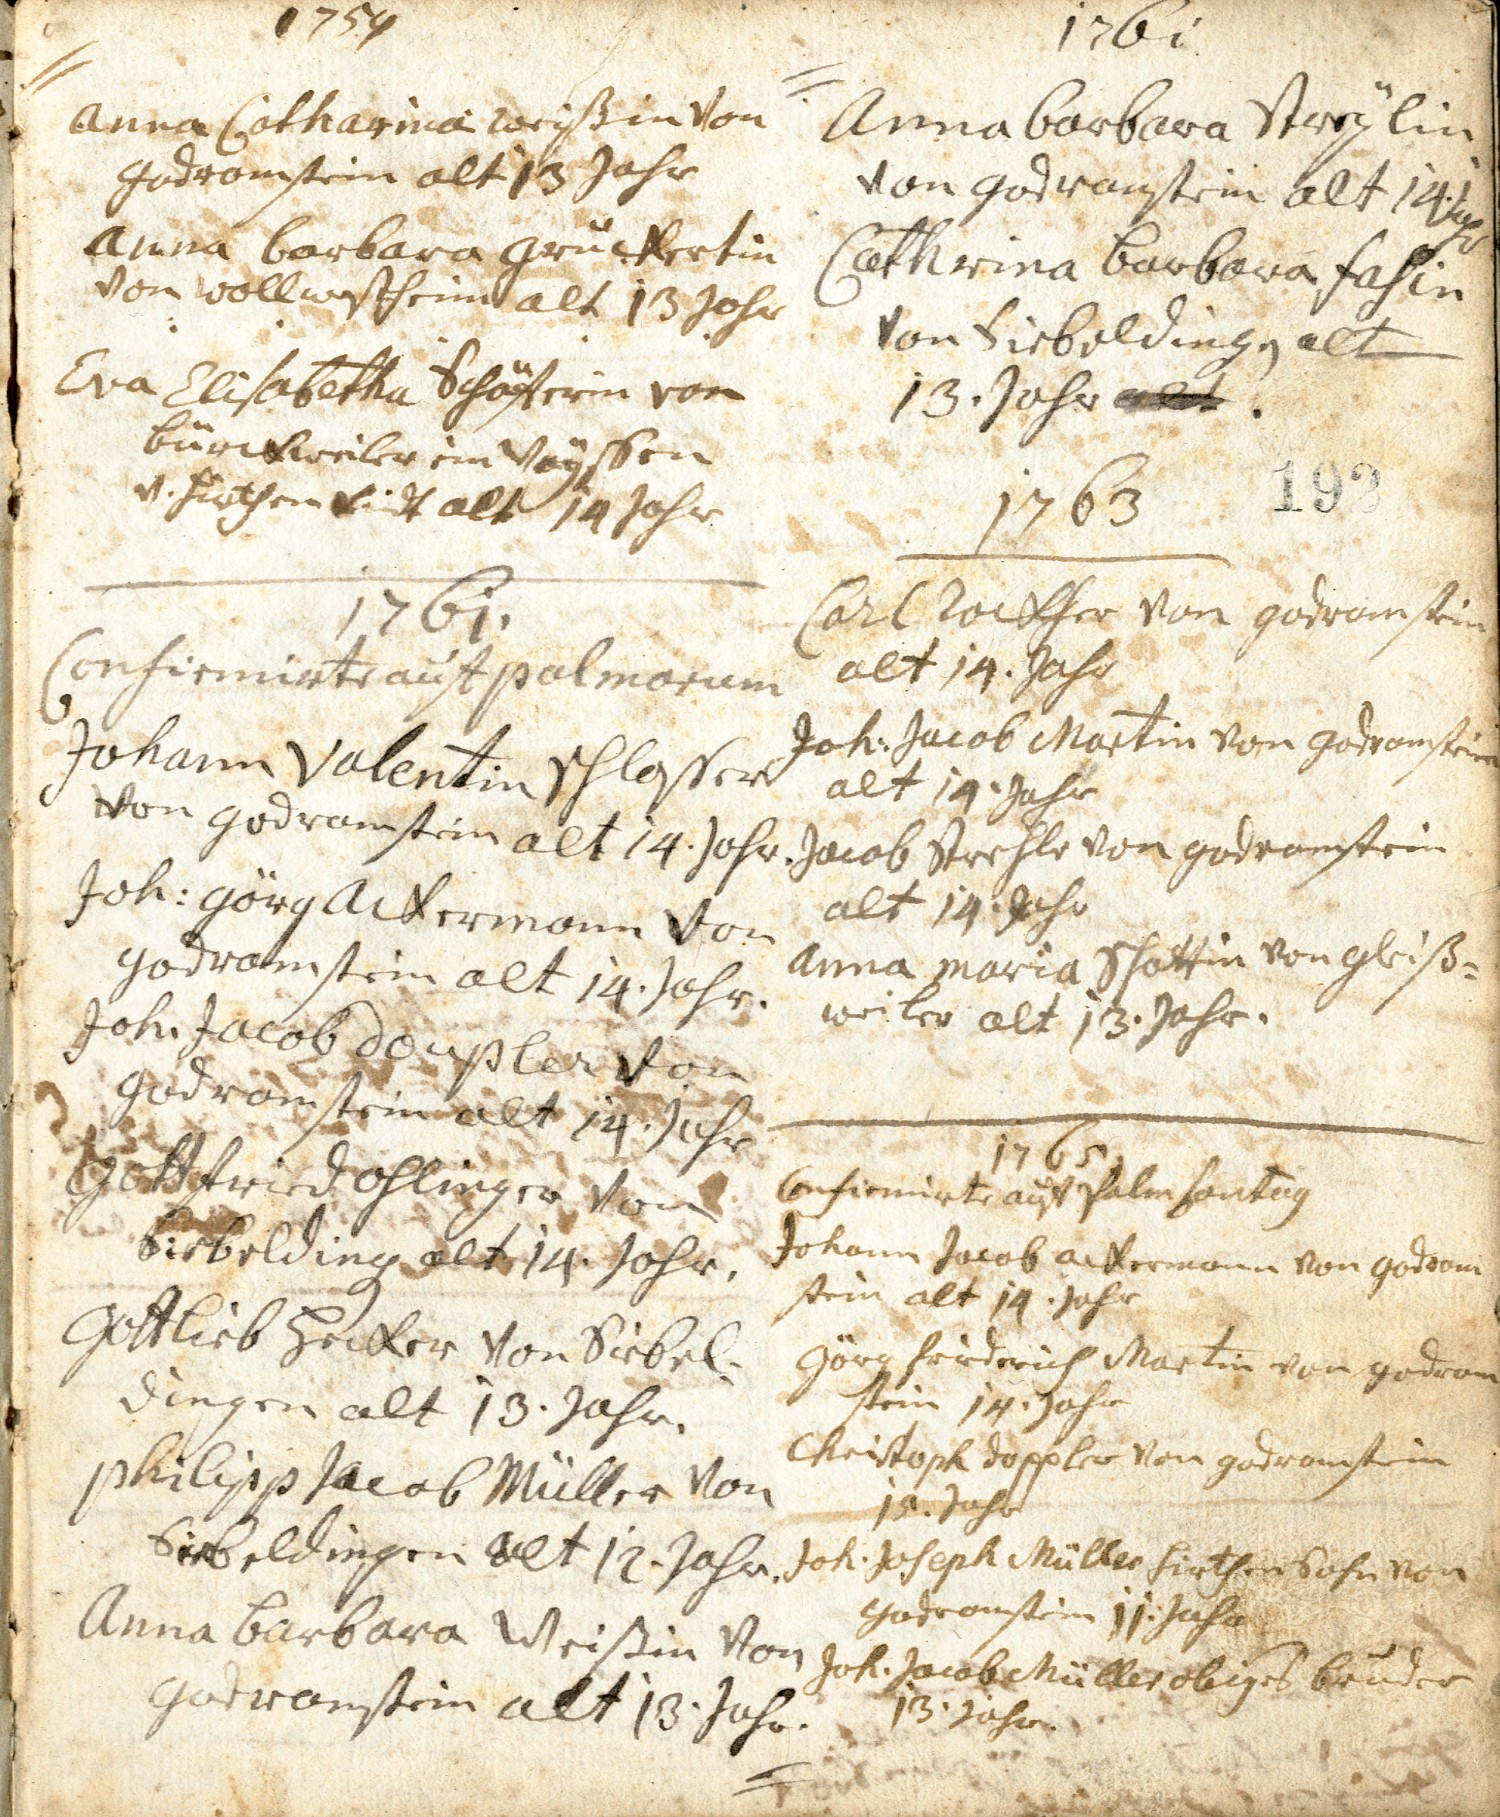 1759
Anna Catharina Weißin von
Godramstein alt 13 Jahr
Anna Barbara Grückertin
von Wollmesheim alt 13 Jahr
Eva Elisabetha Schäfferin von
Bürckweiler im
v. Hirthen Kindt alt 14 Jahr
1761.
Confirmirte auf palmarum
Johann Valentin Schlosser
von Godramstein alt 14. Jahr.
Joh: Görg Ackermann von
Godramstein alt 14. Jahr.
Joh. Jacob Doupler von
Godramstein alt 14. Jahr
Gottfried Ohlinger von
Siebelding alt 14. Jahr.
Gottlieb Hecker von Siebel-
dingen alt 13. Jahr.
Philipp Jacob Müller von
Siebeldingen alt 12. Jahr.
Anna Barbara Weißin von
Godramstein alt 13. Jahr.
1761
Anna Barbara Streÿlin
von Godramstein alt 14. Jahr
Cathrina Barbara Fasin
von Siebelding, alt
13. Jahr alt.
1763
192
Carl Rockher von Godramstein
alt 14. Jahr
Joh: Jacob Martin von Godramstein
alt 14. Jahr
Jacob Strehle von Godramstein
alt 14. Jahr
Anna Maria Schottin von Gleiß=
weiler alt 13. Jahr.
1765
Confirmirte auf Palm Sontag
Johann Jacob Ackermann von Godram
stein alt 14. Jahr
Görg Friderich Martin von Godram
stein 14. Jahr
Christoph Doppler von Godramstein
15. Jahr
Joh. Joseph Müller Hirthen Sohn von
Godramstein 11. Jahr
Joh. Jacob Müller obiges Bruder
13. Jahr.